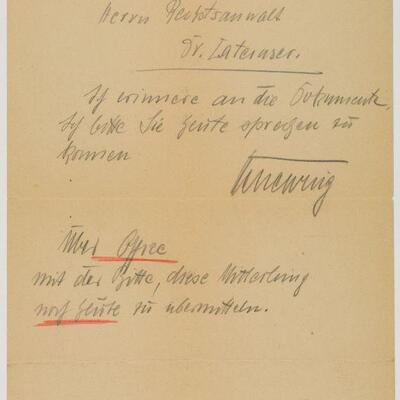 Herrn Rechtsanwalt
Dr. Laternser.
Ich erinnere an die Dokumente,
Ich bitte Sie heute sprechen zu
können
Über
mit der Bitte, diese Mitteilung
noch heute zu übermitteln.